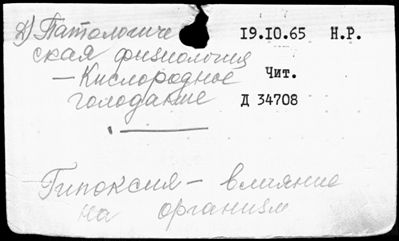 Д) Патологиче
ская физиология
— Кислородное
голодание
19.10.65 Н.Р.
Чит.
Д 34708
Гипоксия — влияние
на организм